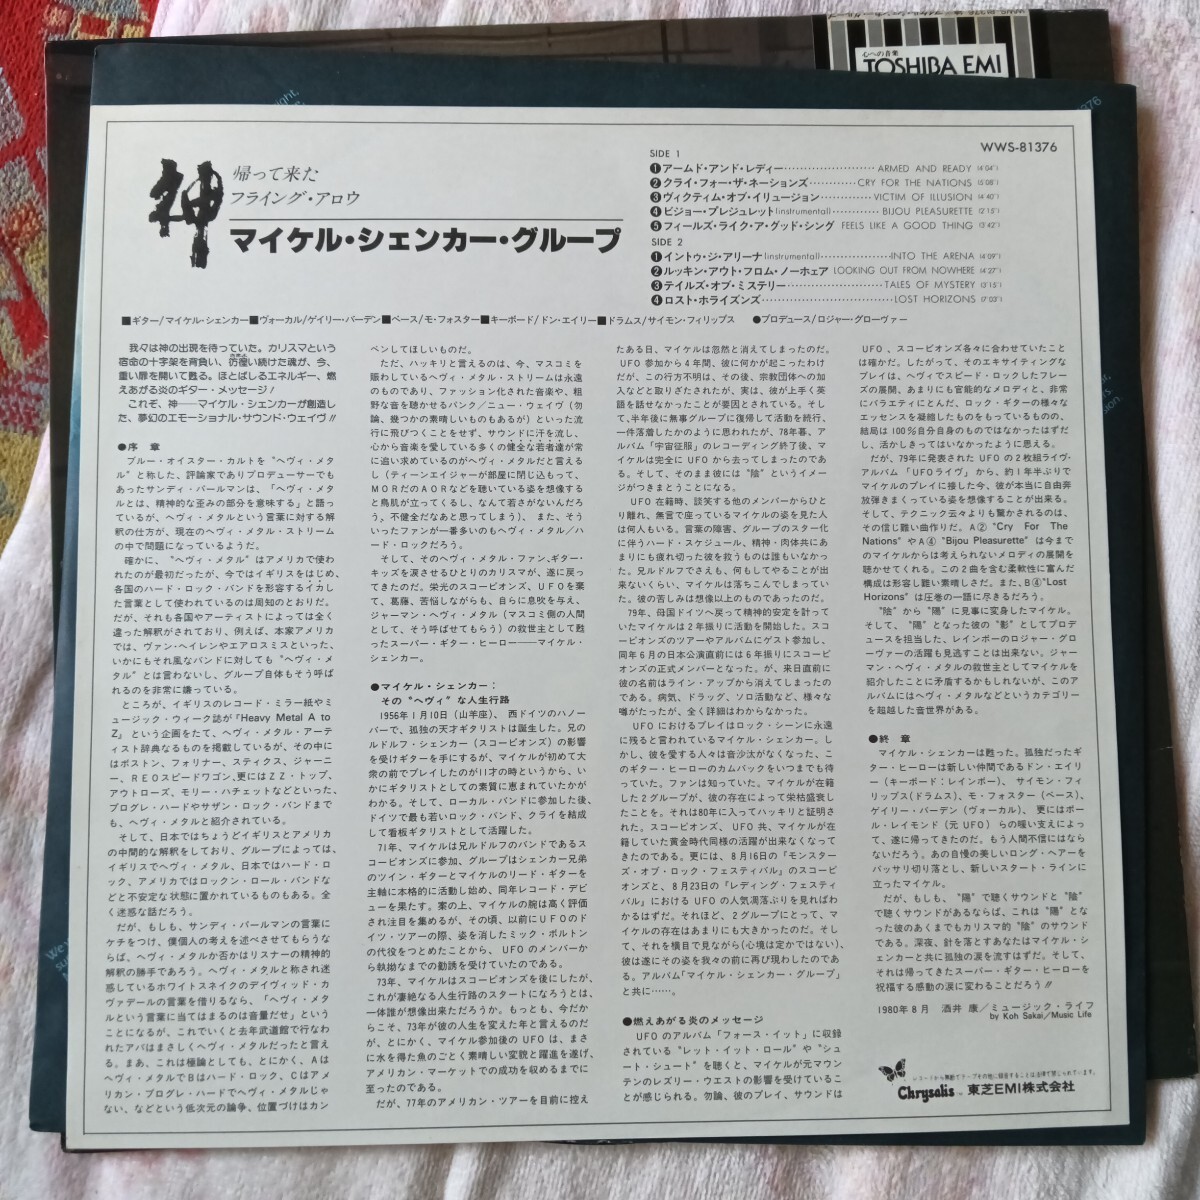 心への音楽
TOSHIBA EMI
WWS-81376
神
帰って来た
フライング・アロウ
マイケル・シェンカー・グループ
SIDE 1
❶アームド・アンド・レディー……ARMED AND READY (4'04")
❷クライ・フォー・ザ・ネーションズ……CRY FOR THE NATIONS (5'08")
❸ヴィクティム・オブ・イリュージョン……VICTIM OF ILLUSION (4'40")
❹ビジョー・プレジュレット(instrumental)……BIJOU PLEASURETTE (2'15")
❺フィールズ・ライク・ア・グッド・シング FEELS LIKE A GOOD THING (3'42")
SIDE 2
❶イントゥ・ジ・アリーナ(instrumental)……INTO THE ARENA (4'09")
❷ルッキン・アウト・フロム・ノーホェア LOOKING OUT FROM NOWHERE (4'27")
❸テイルズ・オブ・ミステリー……TALES OF MYSTERY (3'15")
❹ロスト・ホライズンズ……LOST HORIZONS (7'03")
■ギター/マイケル・シェンカー■ヴォーカル/ゲイリー・バーデン■ベース/モ・フォスター■キーボード/ドン・エイリー■ドラムス/サイモン・フィリップス ●プロデュース/ロジャー・グローヴァー
我々は神の出現を待っていた。カリスマという
宿命の十字架を背負い、彷徨い続けた魂が、今、
重い扉を開いて甦る。ほとばしるエネルギー、燃
えあがる炎のギター・メッセージ！
これぞ、神──マイケル・シェンカーが創造し
た、夢幻のエモーショナル・サウンド・ウェイヴ!!
●序 章
ブルー・オイスター・カルトを“ヘヴィ・メタ
ル”と称した、評論家でありプロデューサーでも
あったサンディ・パールマンは、「ヘヴィ・メタ
ルとは、精神的な歪みの部分を意味する」と語っ
ているが、ヘヴィ・メタルという言葉に対する解
釈の仕方が、現在のヘヴィ・メタル・ストリーム
の中で問題になっているようだ。
確かに、“ヘヴィ・メタル”はアメリカで使わ
れたのが最初だったが、今ではイギリスをはじめ、
各国のハード・ロック・バンドを形容するイカし
た言葉として使われているのは周知のとおりだ。
だが、それも各国やアーティストによっては全く
違った解釈がされており、例えば、本家アメリカ
では、ヴァン・ヘイレンやエアロスミスといった、
いかにもそれ風なバンドに対しても“ヘヴィ・メ
タル”とは言わないし、グループ自体もそう呼ば
れるのを非常に嫌っている。
ところが、イギリスのレコード・ミラー紙やミ
ュージック・ウィーク誌が「Heavy Metal A to
Z」という企画をたて、ヘヴィ・メタル・アーテ
ィスト辞典なるものを掲載しているが、その中に
はボストン、フォリナー、スティクス、ジャーニ
ー、REOスピードワゴン、更にはZZ・トップ、
アウトローズ、モリー・ハチェットなどといった、
プログレ・ハードやサザン・ロック・バンドまで
も、ヘヴィ・メタルと紹介されている。
そして、日本ではちょうどイギリスとアメリカ
の中間的な解釈をしており、グループによっては、
イギリスでヘヴィ・メタル、日本ではハード・ロ
ック、アメリカではロックン・ロール・バンドな
どと不安定な状態に置かれているものもある。全
く迷惑な話だろう。
だが、もしも、サンディ・パールマンの言葉に
ケチをつけ、僕個人の考えを述べさせてもらうな
らば、ヘヴィ・メタルか否かはリスナーの精神的
解釈の勝手であろう。ヘヴィ・メタルと称され迷
惑しているホワイトスネイクのデイヴィッド・カ
ヴァデールの言葉を借りるなら、「ヘヴィ・メタ
ルという言葉に当てはまるのは音量だぜ」という
ことになるが、これでいくと去年武道館で行なわ
れたアバはまさしくヘヴィ・メタルだったと言え
る。まあ、これは極論としても、とにかく、Aは
ヘヴィ・メタルでBはハード・ロック、Cはアメ
リカン・プログレ・ハードでヘヴィ・メタルじゃ
ない、などという低次元の論争、位置づけはカン
ベンしてほしいものだ。
ただ、ハッキリと言えるのは、今、マスコミを
賑わしているヘヴィ・メタル・ストリームは永遠
のものであり、ファッション化された音楽や、粗
野な音を聴かせるパンク/ニュー・ウェイヴ(勿
論、幾つかの素晴しいものもあるが)といった流
行に飛びつくことをせず、サウンドに汗を流し、
心から音楽を愛している多くの健全な若者達が常
に追い求めているのがヘヴィ・メタルだと言える
し(ティーンエイジャーが部屋に閉じ込もって、
MORだのAORなどを聴いている姿を想像する
と鳥肌が立ってくるし、なんて若さがないんだろ
う。不健全だなあと思ってしまう)、また、そう
いったファンが一番多いのもヘヴィ・メタル/ハ
ード・ロックだろう。
そして、そのヘヴィ・メタル・ファン、ギター・
キッズを涙させるひとりのカリスマが、遂に戻っ
てきたのだ。栄光のスコーピオンズ、UFOを棄
て、葛藤、苦悩しながらも、自らに息吹を与え、
ジャーマン・ヘヴィ・メタル(マスコミ側の人間
として、そう呼ばせてもらう)の救世主として甦
ったスーパー・ギター・ヒーロー──マイケル・
シェンカー。
●マイケル・シェンカー：
その“ヘヴィ”な人生行路
1956年1月10日(山羊座)、西ドイツのハノー
バーで、孤独の天才ギタリストは誕生した。兄の
ルドルフ・シェンカー(スコーピオンズ)の影響
を受けギターを手にするが、マイケルが初めて大
衆の前でプレイしたのが11才の時というから、い
かにギタリストとしての素質に恵まれていたかが
わかる。そして、ローカル・バンドに参加した後、
ドイツで最も若いロック・バンド、クライを結成
して看板ギタリストとして活躍した。
71年、マイケルは兄ルドルフのバンドであるス
コーピオンズに参加、グループはシェンカー兄弟
のツイン・ギターとマイケルのリード・ギターを
主軸に本格的に活動し始め、同年レコード・デビ
ューを果たす。案の上、マイケルの腕は高く評価
され注目を集めるが、その頃、以前にUFOのド
イツ・ツアーの際、姿を消したミック・ボルトン
の代役をつとめたことから、UFOのメンバーか
ら執拗なまでの勧誘を受けていたのである。
73年、マイケルはスコーピオンズを後にしたが、
これが凄絶なる人生行路のスタートになろうとは、
一体誰が想像出来ただろう。もっとも、今だか
らこそ、73年が彼の人生を変えた年と言えるのだ
が、とにかく、マイケル参加後のUFOは、まさ
に水を得た魚のごとく素晴しい変貌と躍進を遂げ、
アメリカン・マーケットでの成功を収めるまでに
至ったのである。
だが、77年のアメリカン・ツアーを目前に控え
たある日、マイケルは忽然と消えてしまったのだ。
UFO参加から4年間、彼に何かが起こったわけ
だが、この行方不明は、その後、宗教団体への加
入などと取りざたされたが、実は、彼が上手く英
語を話せなかったことが要因とされている。そし
て、半年後に無事グループに復帰して活動を続行、
一件落着したかのように思われたが、78年暮、ア
ルバム「宇宙征服」のレコーディング終了後、マ
イケルは完全にUFOから去ってしまったのであ
る。そして、そのまま彼には“陰”というイメー
ジがつきまとうことになる。
UFO在籍時、談笑する他のメンバーからひと
り離れ、無言で座っているマイケルの姿を見た人
は何人もいる。言葉の障害、グループのスター化
に伴うハード・スケジュール、精神・肉体共にあ
まりにも疲れ切った彼を救うものは誰もいなかっ
た。兄ルドルフでさえも、何もしてやることが出
来ないくらい、マイケルは落ちこんでしまってい
た。彼の苦しみは想像以上のものであったのだ。
79年、母国ドイツへ戻って精神的安定を計って
いたマイケルは2年振りに活動を開始した。スコ
ーピオンズのツアーやアルバムにゲスト参加し、
同年6月の日本公演直前には6年振りにスコーピ
オンズの正式メンバーとなった。が、来日直前に
彼の名前はライン・アップから消えてしまったの
である。病気、ドラッグ、ソロ活動など、様々な
噂がたったが、全く詳細はわからなかった。
UFOにおけるプレイはロック・シーンに永遠
に残ると言われているマイケル・シェンカー。し
かし、彼を愛する人々は音沙汰がなくなった、こ
のギター・ヒーローのカムバックをいつまでも待
っていた。ファンは知っていた。マイケルが在籍
した2グループが、彼の存在によって栄枯盛衰し
たことを。それは80年に入ってハッキリと証明さ
れた。スコーピオンズ、UFO共、マイケルが在
籍していた黄金時代同様の活躍が出来なくなって
きたのである。更には、8月16日の「モンスター
ズ・オブ・ロック・フェスティバル」のスコーピ
オンズと、8月23日の「レディング・フェスティ
バル」におけるUFOの人気凋落ぶりを見ればわ
かるはずだ。それほど、2グループにとって、マ
イケルの存在はあまりにも大きかったのだ。そし
て、それを横目で見ながら(心境は定かではない)、
彼は遂にその姿を我々の前に再び現わしたのであ
る。アルバム「マイケル・シェンカー・グループ」
と共に……。
●燃えあがる炎のメッセージ
UFOのアルバム「フォース・イット」に収録
されている“レット・イット・ロール”や“シュ
ート・シュート”を聴くと、マイケルが元マウン
テンのレズリー・ウエストの影響を受けているこ
とが感じられる。勿論、彼のプレイ、サウンドは
UFO、スコーピオンズ各々に合わせていたこと
は確かだ。したがって、そのエキサイティングな
プレイは、ヘヴィでスピード・ロックしたフレーズ
の展開、あまりにも官能的なメロディと、非常
にバラエティにとんだ、ロック・ギターの様々な
エッセンスを凝縮したものをもっているものの、
結局は100％自分自身のものではなかったはずだ
し、活かしきってはいなかったように思える。
だが、79年に発表されたUFOの2枚組ライヴ・
アルバム「UFOライヴ」から、約1年半ぶりで
マイケルのプレイに接した今、彼が本当に自由奔
放弾きまくっている姿が想像することが出来る。
そして、テクニック云々よりも驚かされるのは、
その信じ難い曲作りだ。A②“Cry For The
Nations”やA④“Bijou Pleasurette”は今まで
のマイケルからは考えられないメロディの展開を
聴かせてくれる。この2曲を含む柔軟性に富んだ
構成は形容し難い素晴しさだ。また、B④“Lost
Horizons”は圧巻の一語に尽きるだろう。
“陰”から“陽”に見事に変身したマイケル。
そして、“陽”となった彼の“影”としてプロデ
ュースを担当した、レインボーのロジャー・グロ
ーヴァーの活躍も見逃すことは出来ない。ジャー
マン・ヘヴィ・メタルの救世主としてマイケルを
紹介したことに矛盾するかもしれないが、このア
ルバムにはヘヴィ・メタルなどというカテゴリー
を超越した音世界がある。
●終 章
マイケル・シェンカーは甦った。孤独だったギ
ター・ヒーローは新しい仲間であるドン・エイリ
ー(キーボード：レインボー)、サイモン・フィ
リップス(ドラムス)、モ・フォスター(ベース)、
ゲイリー・バーデン(ヴォーカル)、更にはポー
ル・レイモンド(元UFO)らの暖い支えによっ
て、遂に帰ってきたのだ。もう人間不信にはなら
ないだろう。あの自慢の美しいロング・ヘアーを
バッサリ切り落とし、新しいスタート・ラインに
立ったマイケル。
だが、もしも、“陽”で聴くサウンドと“陰”
で聴くサウンドがあるならば、これは“陽”とな
った彼のあくまでもカリスマ的“陰”のサウンド
である。深夜、針を落とすあなたはマイケル・シ
ェンカーと共に孤独の涙を流すはずだ。そして、
それは帰ってきたスーパー・ギター・ヒーローを
祝福する感動の涙に変わることだろう!!
1980年8月 酒井 康/ミュージック・ライフ
by Koh Sakai/Music Life
レコードから無断でテープその他に録音することは法律で禁じられています。
Chrysalis 東芝EMI株式会社